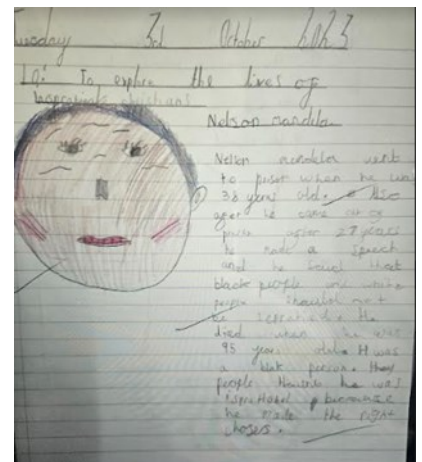 Tuesday 3rd October 2023
LQ: To explore the lives of
Nelson mandela
Nelson mandela went
to prison when he was
38 years old.
after he came out of
prison after 27 years
he made a speech
and he said that
black people and white
people should not
be
died when he was
95 years old. H was
a blak person. they
people he was
because
he made the right
choses.